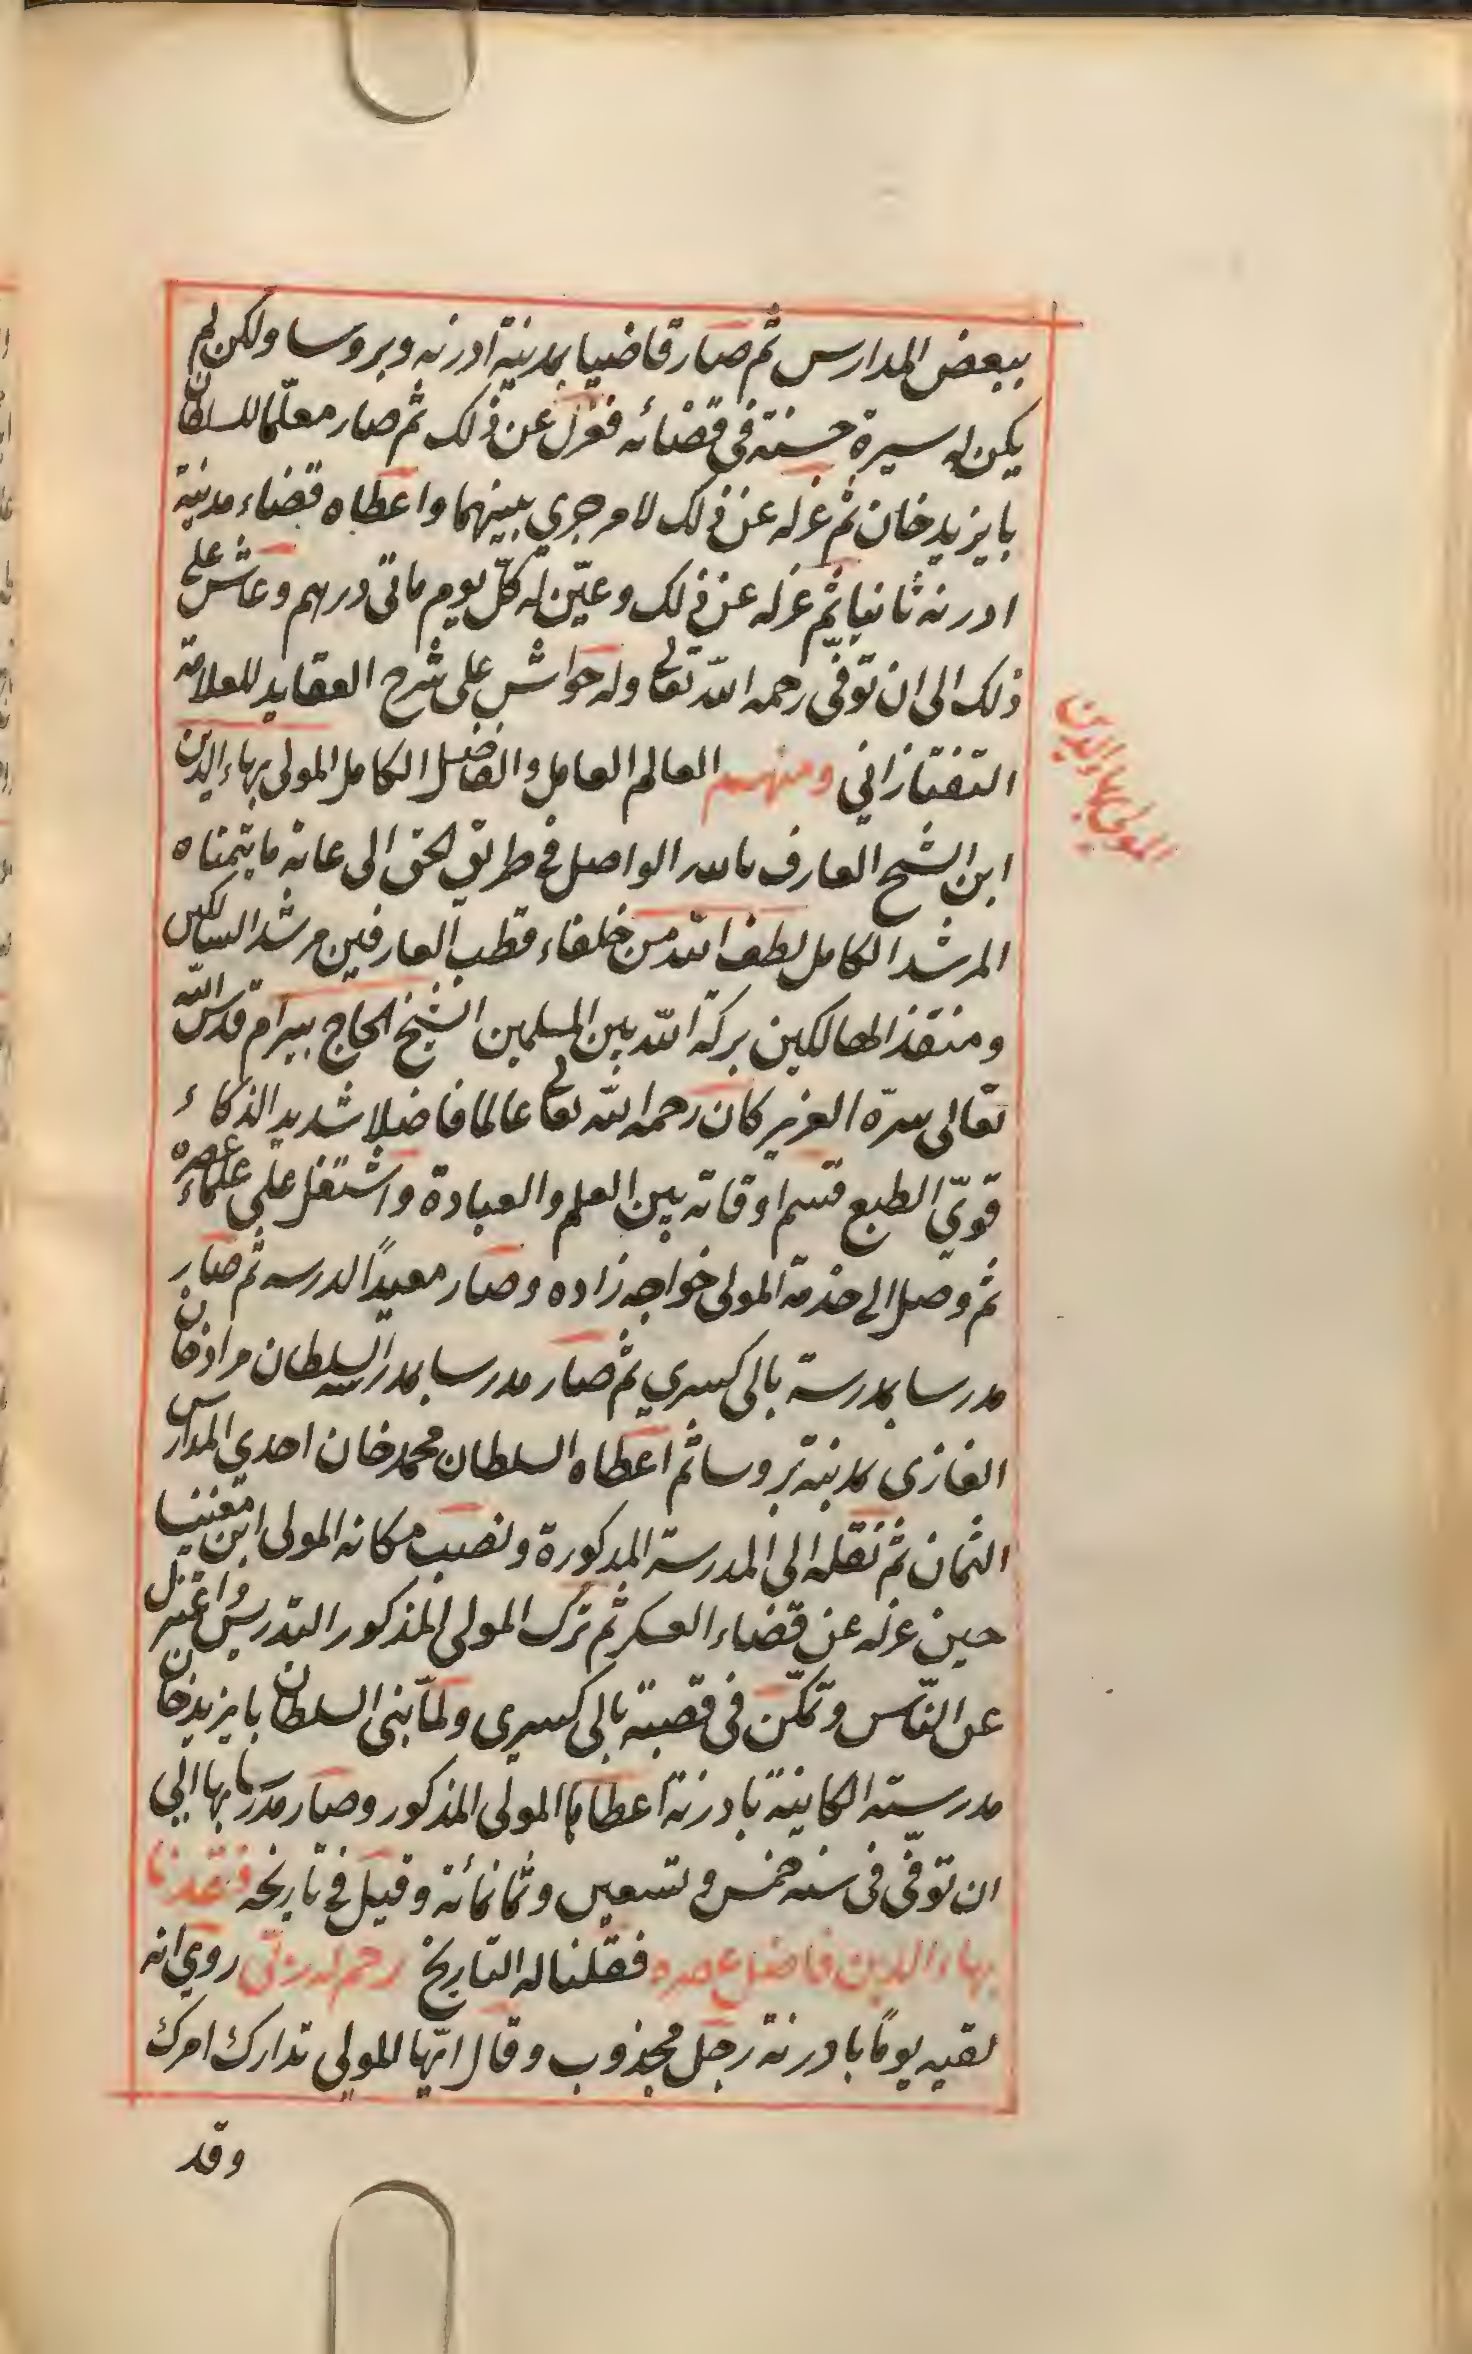 ببعض المدارس ثم صار قاضيا بمدينة ادرنه وبروسا ولكن لم
يكن له سيرة حسنة فى قضائه فعزل عن ذلك ثم صار معلّما للسلطان
بايزيد خان ثم عزله عن ذلك لامر جرى بينهما واعطاه قضاء مدينة
ادرنه ثانيا ثم عزله عن ذلك وعيّن له كلّ يوم مائتى درهم وعاش على
ذلك الى ان توفّى رحمه الله تعالى وله حواش على شرح العقايد للعلامة
التفتازانى ومنهم العالم العامل والفاضل الكامل المولى بهاء الدين
المولى بهاء الدين
ابن الشيخ العارف بالله الواصل فى طريق الحق الى غاية ما يتمناه
المرشد الكامل لطف الله من خلفاء قطب العارفين مرشد السالكين
ومنقذ الهالكين بركة الله بين المسلمين الشيخ الحاج بيرام قدس الله
تعالى سرّه العزيز كان رحمه الله تعالى عالما فاضلا شديد الذكاء
قوىّ الطبع قسم اوقاته بين العلم والعبادة واشتغل على علماء عصره
ثم وصل الى خدمة المولى خواجه زاده وصار معيدًا لدرسه ثم صار
مدرسا بمدرسة بالى كسرى ثم صار مدرسا بمدرسة السلطان مراد خان
الغازى بمدينة بروسا ثم اعطاه السلطان محمد خان احدى المدارس
الثمان ثم نقله الى المدرسة المذكورة ونصب مكانه المولى ابن مغنيسا
حين عزله عن قضاء العسكر ثم ترك المولى المذكور التدريس واعتزل
عن النّاس وتمكّن فى قصبة بالى كسرى ولمّا بنى السلطان بايزيد خان
مدرسته الكاينة بادرنة اعطاها المولى المذكور وصار مدرسا بها الى
ان توفّى فى سنه خمس وتسعين وثمانمائة وقيل فى تاريخه فقدنا
بهاء الدين فاضل عصره فقلنا له التاريخ روى انه
لقيه يومًا بادرنة رجل مجذوب وقال ايّها المولى تدارك امرك
وقد